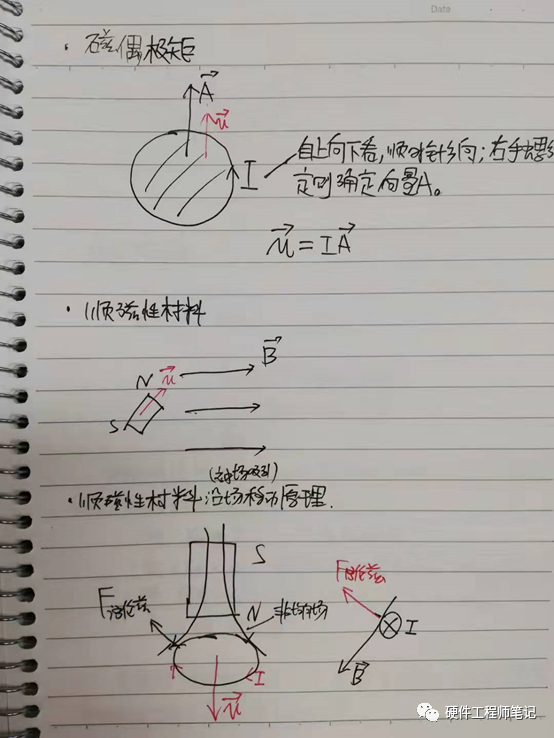 Date
· 磁偶极矩
A
u
I
自上向下看,顺时针方向;右手螺
定则确定向量A。
u = IA
· 顺磁性材料
N u
B
S
(被场吸引)
· 顺磁性材料沿场移动原理.
S
F洛伦兹
N
I
u
F洛伦兹
I
B
硬件工程师笔记